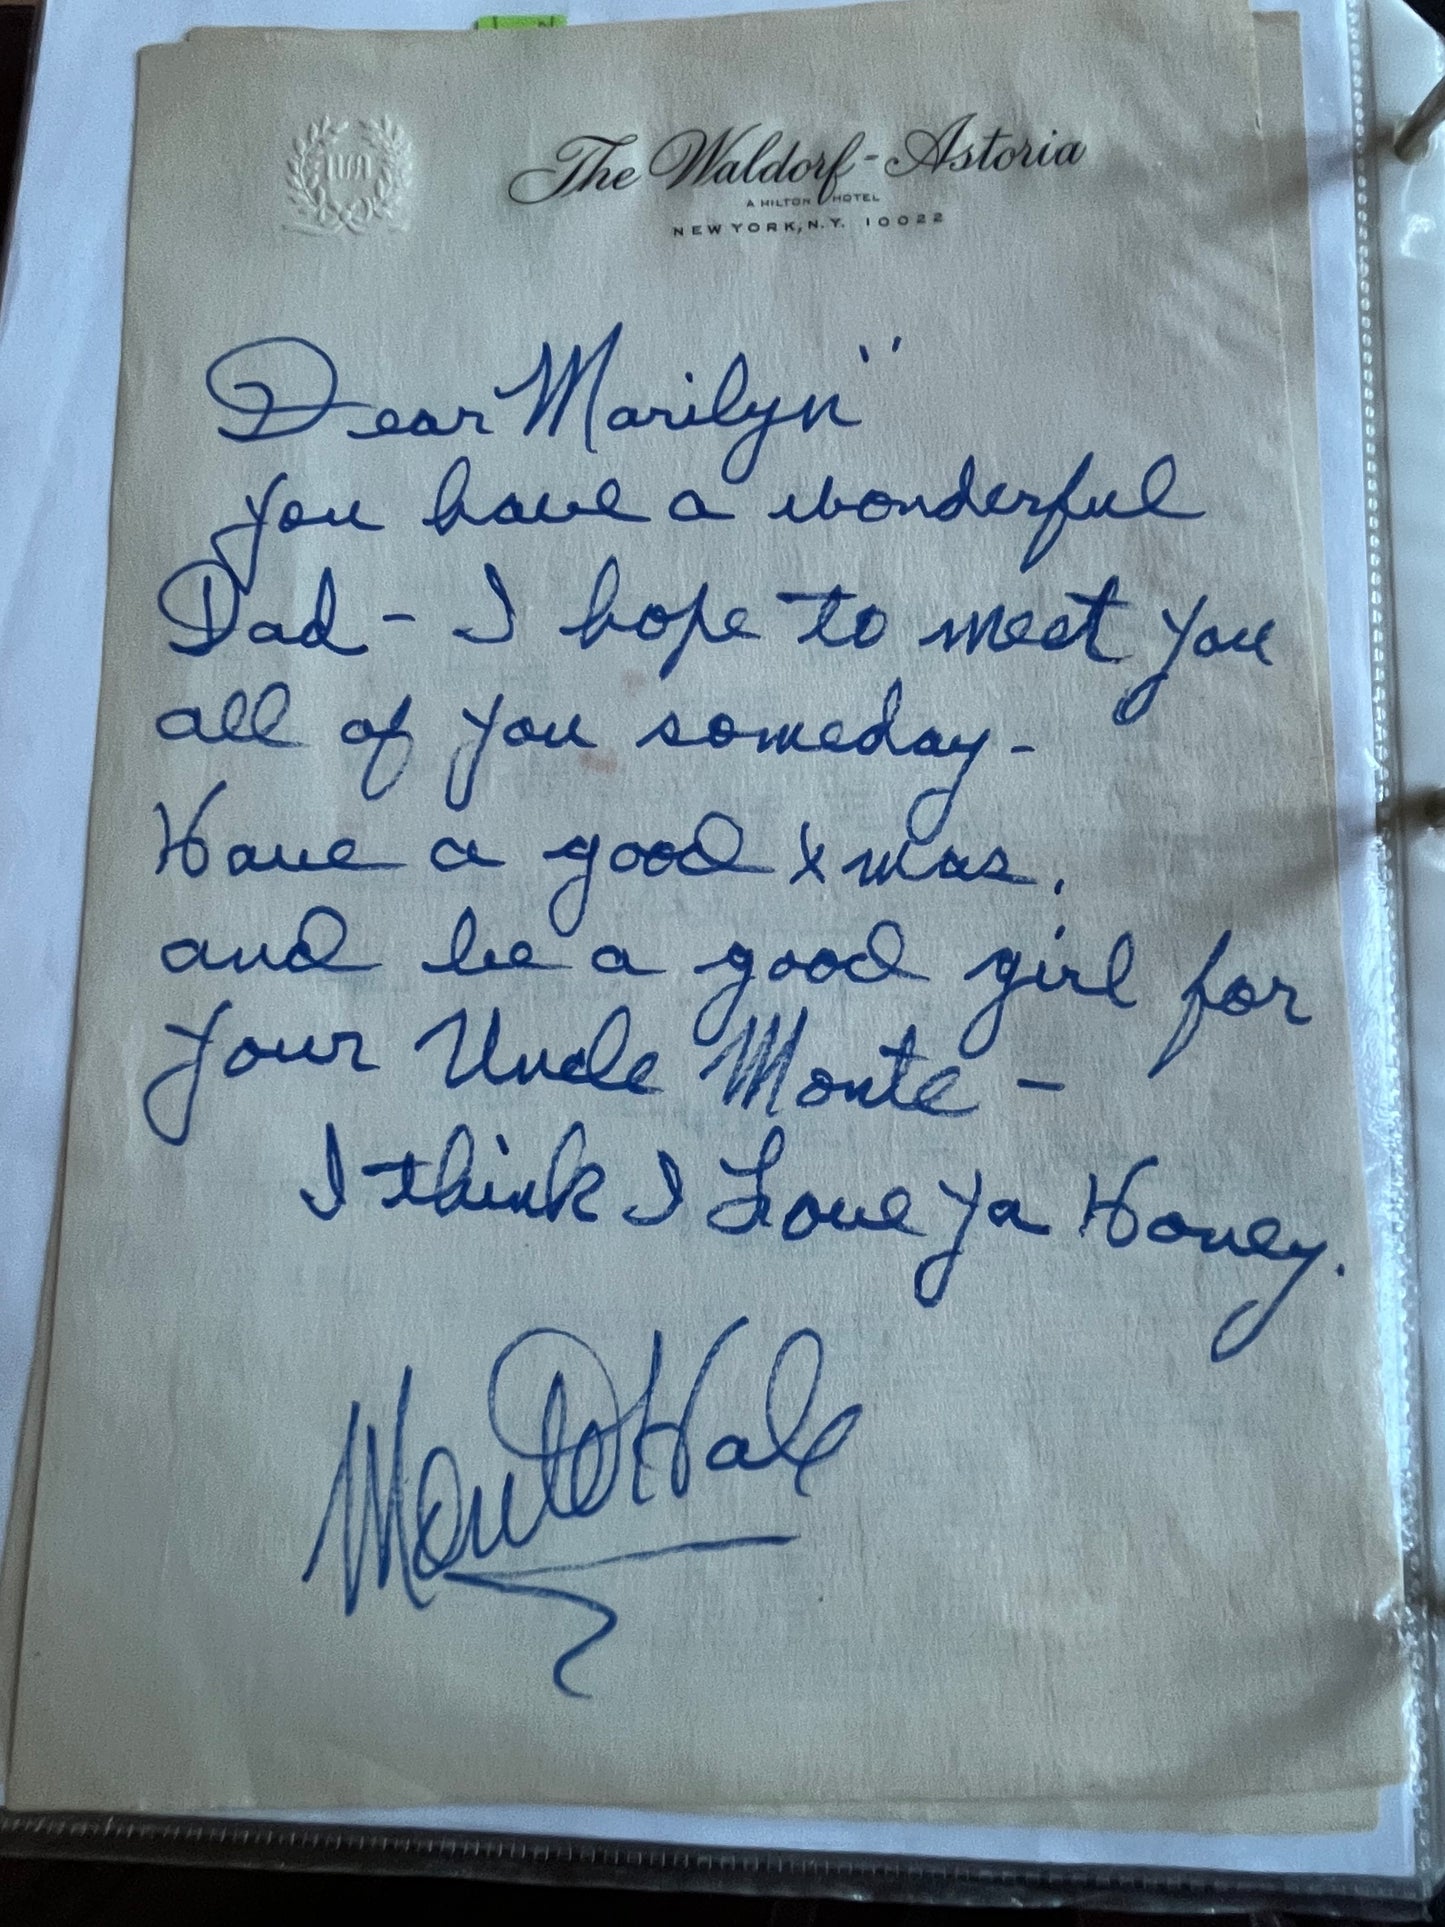 The Waldorf-Astoria
A HILTON HOTEL
NEW YORK, N.Y. 10022
Dear Marilyn"
you have a wonderful
Dad - I hope to meet you
all of you someday -
Have a good xmas.
and be a good girl for
your Uncle Monte -
I think I Love ya Honey.
Monte Hale